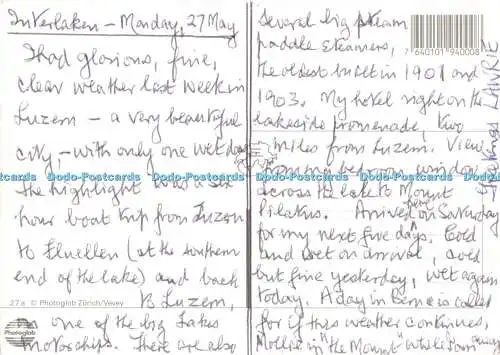 Interlaken – Monday, 27 May
I had glorious, fine,
clear weather last week in
Luzern – a very beautiful
city, – with only one wet day
the highlight was a six
hour boat trip from Luzern
to Fluellen (at the southern
end of the lake) and back
to Luzern,
one of the big Lakes
motorships. There are also
several big steam
paddle steamers,
the oldest built in 1901 and
1903. My hotel right on the
lakeside promenade, two
miles from Luzern. View
from my window
across the lake to Mount
Pilatus. Arrived here on Saturday
for my next five days. Cold
and wet on arrival, cold
but fine yesterday, wet again
today. A day in Berne is called
for if this weather continues,
in the Mount
7 640101 940008
27 e © Photoglob Zürich/Vevey
Photoglob
Dodo-Postcards Dodo-Postcards Dodo-Postcards Dodo-Postcards
Dodo-Postcards Dodo-Postcards Dodo-Postcards Dodo-Postcards
LAWRIE